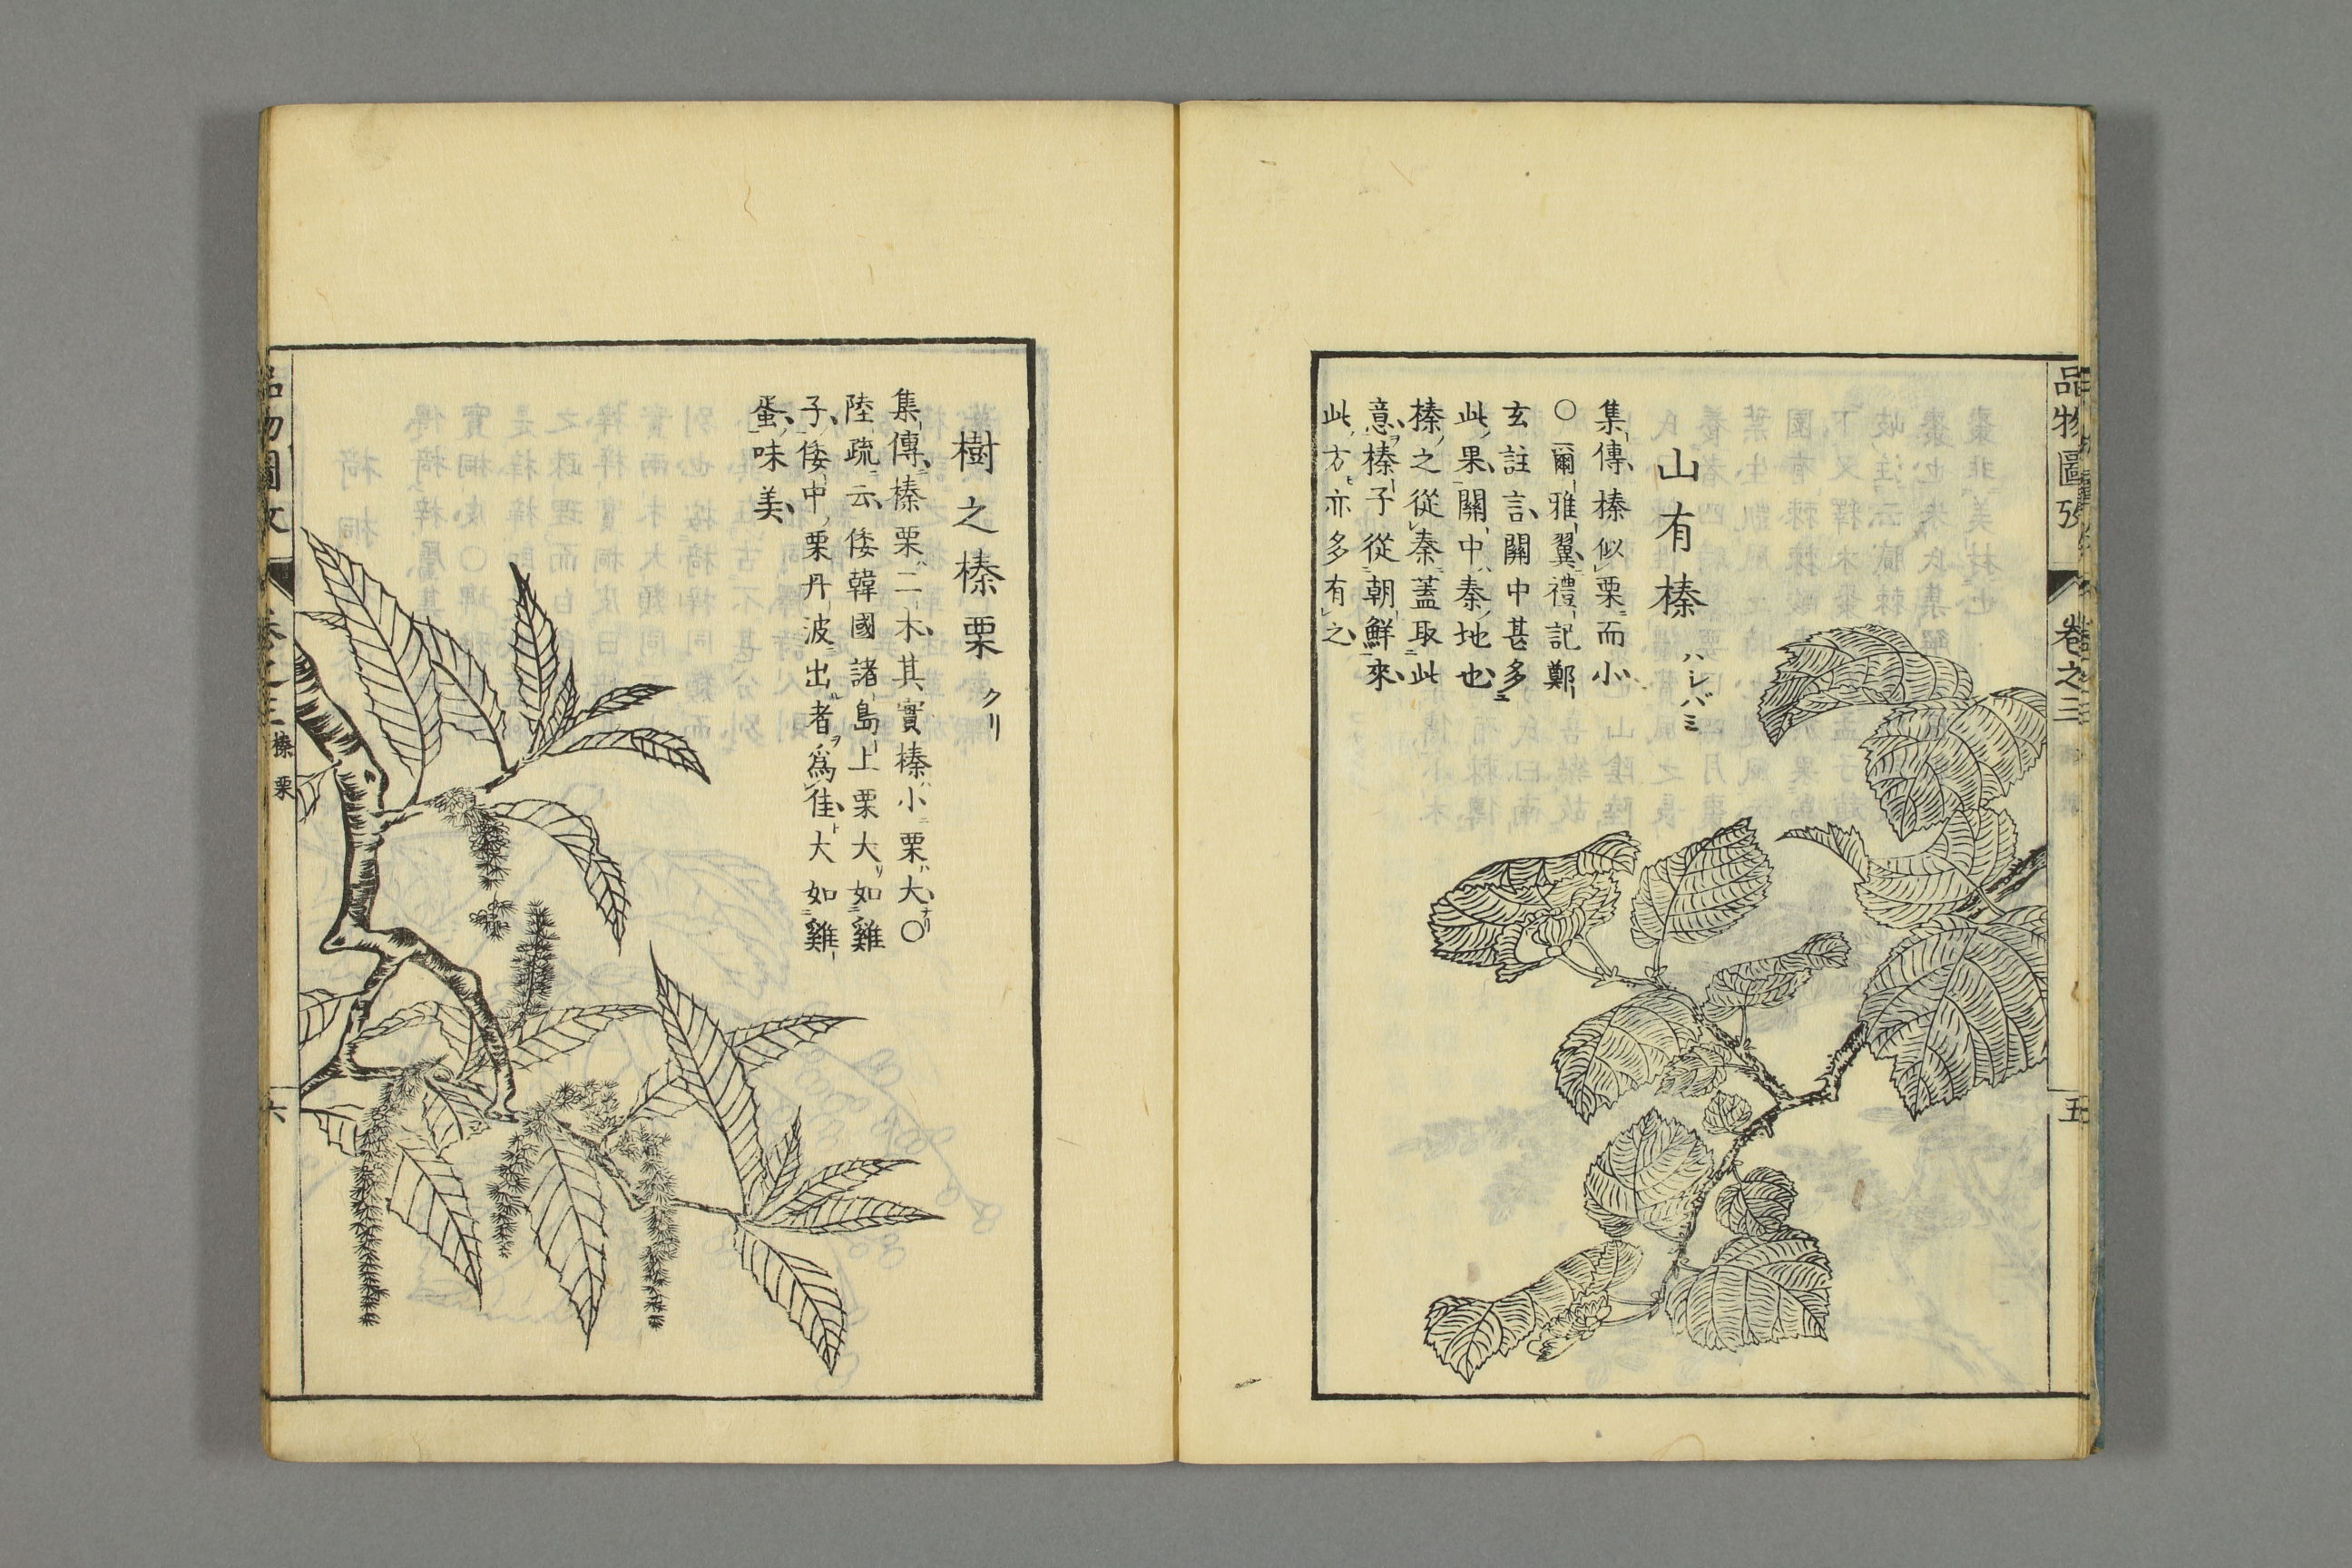 品物圖攷 卷之三 五
山有榛 ハシバミ
集傳榛似栗而小
○爾雅翼禮記鄭
玄註言關中甚多
此果關中秦地也
榛之從秦蓋取此
意榛子從朝鮮來
此方亦多有之
樹之榛栗 クリ
集傳榛栗二木其實榛小栗大○
陸疏云倭韓國諸島上栗大如雞
子倭中栗丹波出者爲佳大如雞
蛋味美
品物圖攷 卷之三 榛栗 六